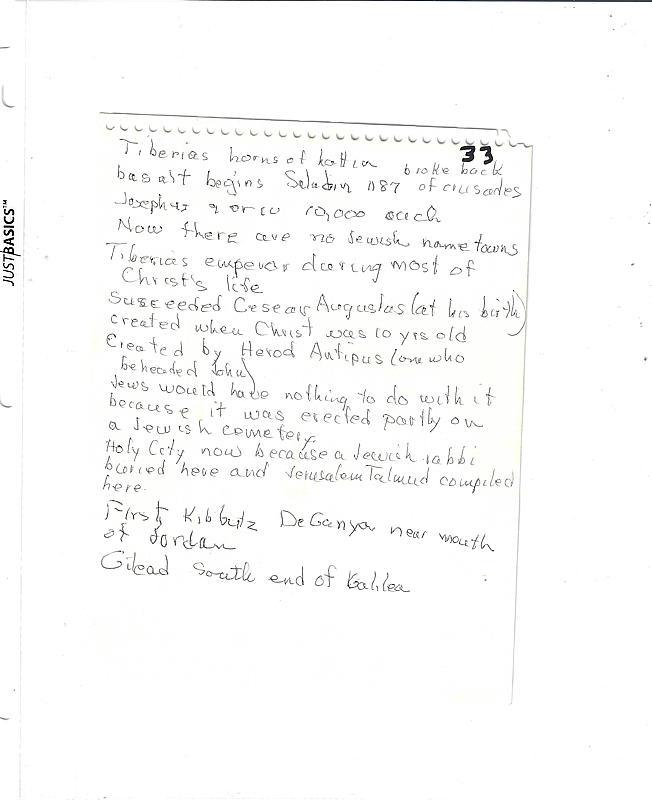 JUSTBASICS™
33
Tiberias horns of hattin broke back
basalt begins Saladin 1187 of crusades
Josephus 9 or 10 10,000 each
Now there are no Jewish name towns
Tiberias emperor during most of
Christ's life
Succeeded Cesear Augustus (at his birth)
created when Christ was 10 yrs old
Created by Herod Antipus (one who
beheaded John)
Jews would have nothing to do with it
because it was erected partly on
a Jewish cemetery.
Holy City now because a Jewish rabbi
buried here and Jerusalem Talmud compiled
here.
First Kibbutz DeGanya near mouth
of Jordan
Gilead South end of Galilea